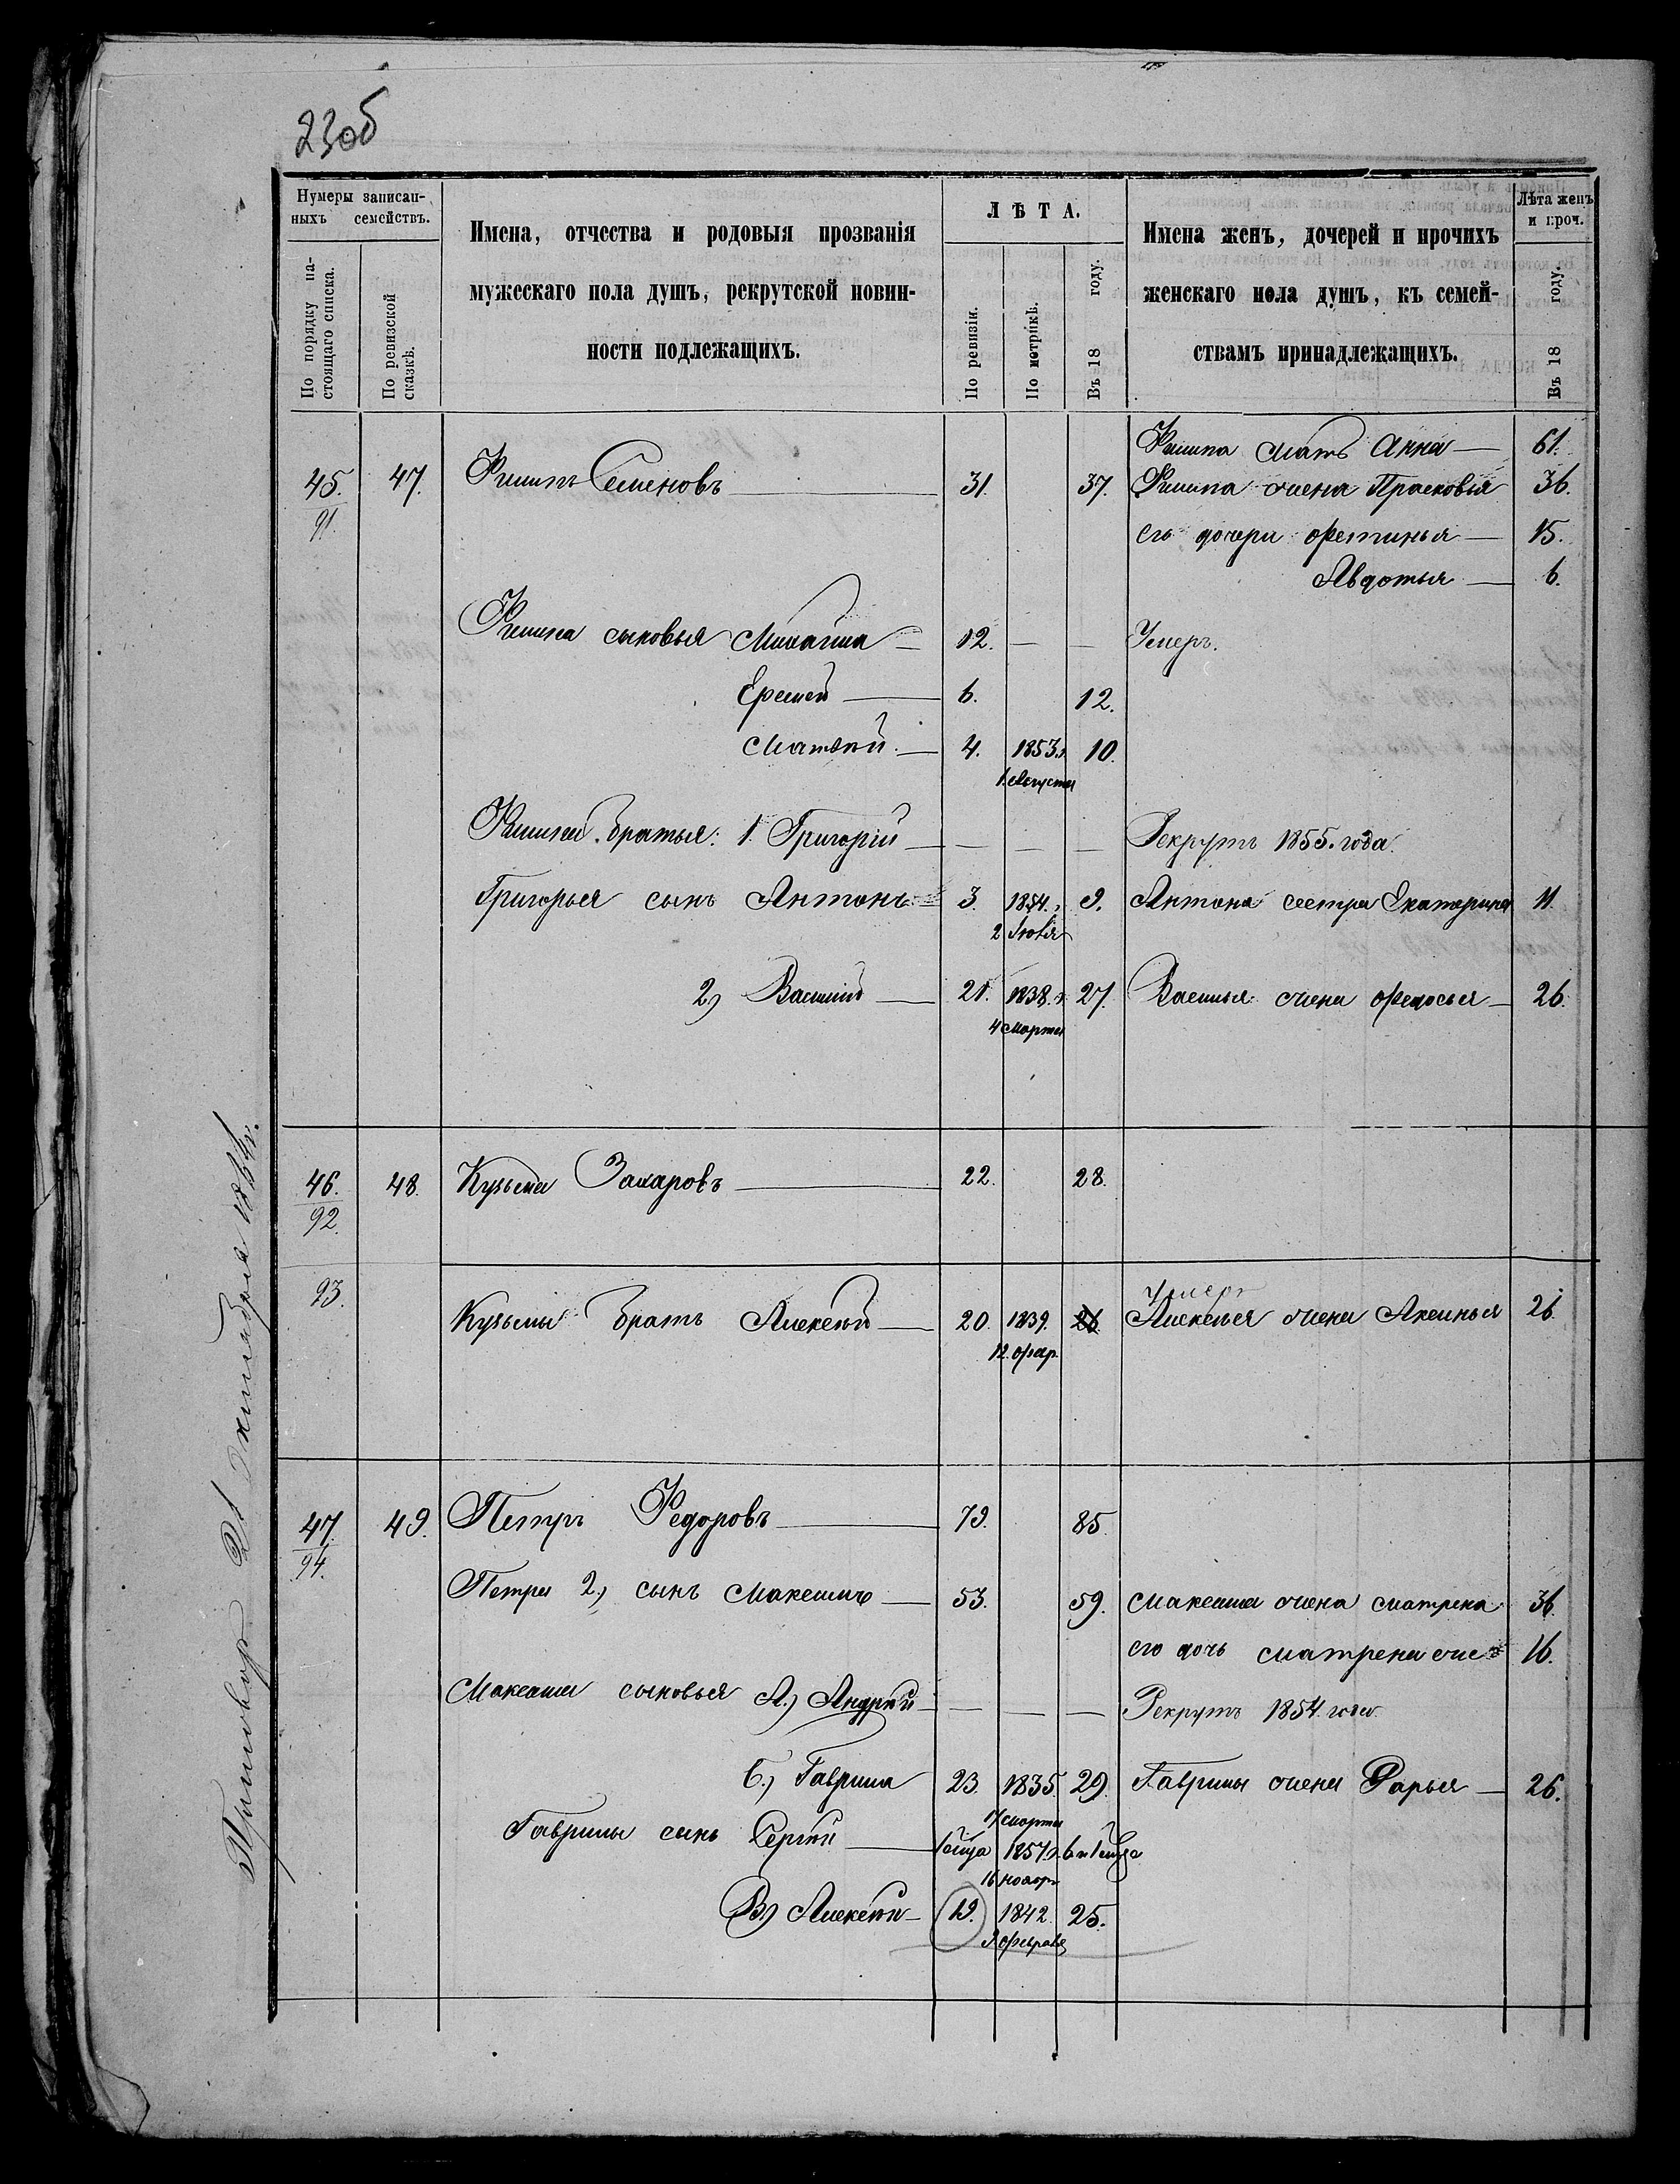 23об
Нумеры записан-
ныхъ семействъ.
По порядку на-
стоящаго списка.
По ревизской
сказкѣ.
Имена, отчества и родовыя прозванія
мужескаго пола душъ, рекрутской повин-
ности подлежащихъ.
ЛѢТА.
По ревизіи.
По метрикѣ.
Въ 18 году.
Имена женъ, дочерей и прочихъ
женскаго пола душъ, къ семей-
ствамъ принадлежащихъ.
Лѣта женъ
и проч.
Въ 18 году.
Филипа мать Анна — 61.
45. 47. Филипъ Семеновъ — 31. 37. Филипа жена Прасковья 36.
91.
его дочери Фетинья — 15.
Авдотья — 6.
Филипа сыновья Михаила — 12. — — Умеръ.
Еремей — 6. 12.
Матвѣй — 4. 1853 г. 10.
1 августа
Филипа братья: 1. Григорій — — — — Рекрутъ 1855. года.
Григорья сынъ Антонъ — 3. 1854. г. 9. Антона сестра Екатерина 11
2 Іюля
2, Василій — 21. 1838. г. 27. Василья жена Федосья — 26.
4 марта
46. 48. Кузьма Захаровъ — 22. 28.
92.
93.
Умеръ
Кузьмы братъ Алексѣй — 20. 1839. 26 Алексѣя жена Аксинья 26.
12. фев.
47. 49. Петръ Федоровъ — 79. 85.
94.
Петра 2, сынъ Максимъ — 53. 59. Максима жена Матрена 36.
его дочь Матрена же 16.
Максима сыновья А, Андрей — — — — Рекрутъ 1854. года.
Б, Гаврила 23. 1835. 29. Гаврилы жена Дарья — 26.
17 марта
Гаврилы сынъ Сергѣй — 1 мѣсяца 1857 г. 6 и 1 мѣсяца
16 нояб.
В, Алексѣй — 19. 1842. 25.
9 февраля
Приговор 21 октября 1864 г.